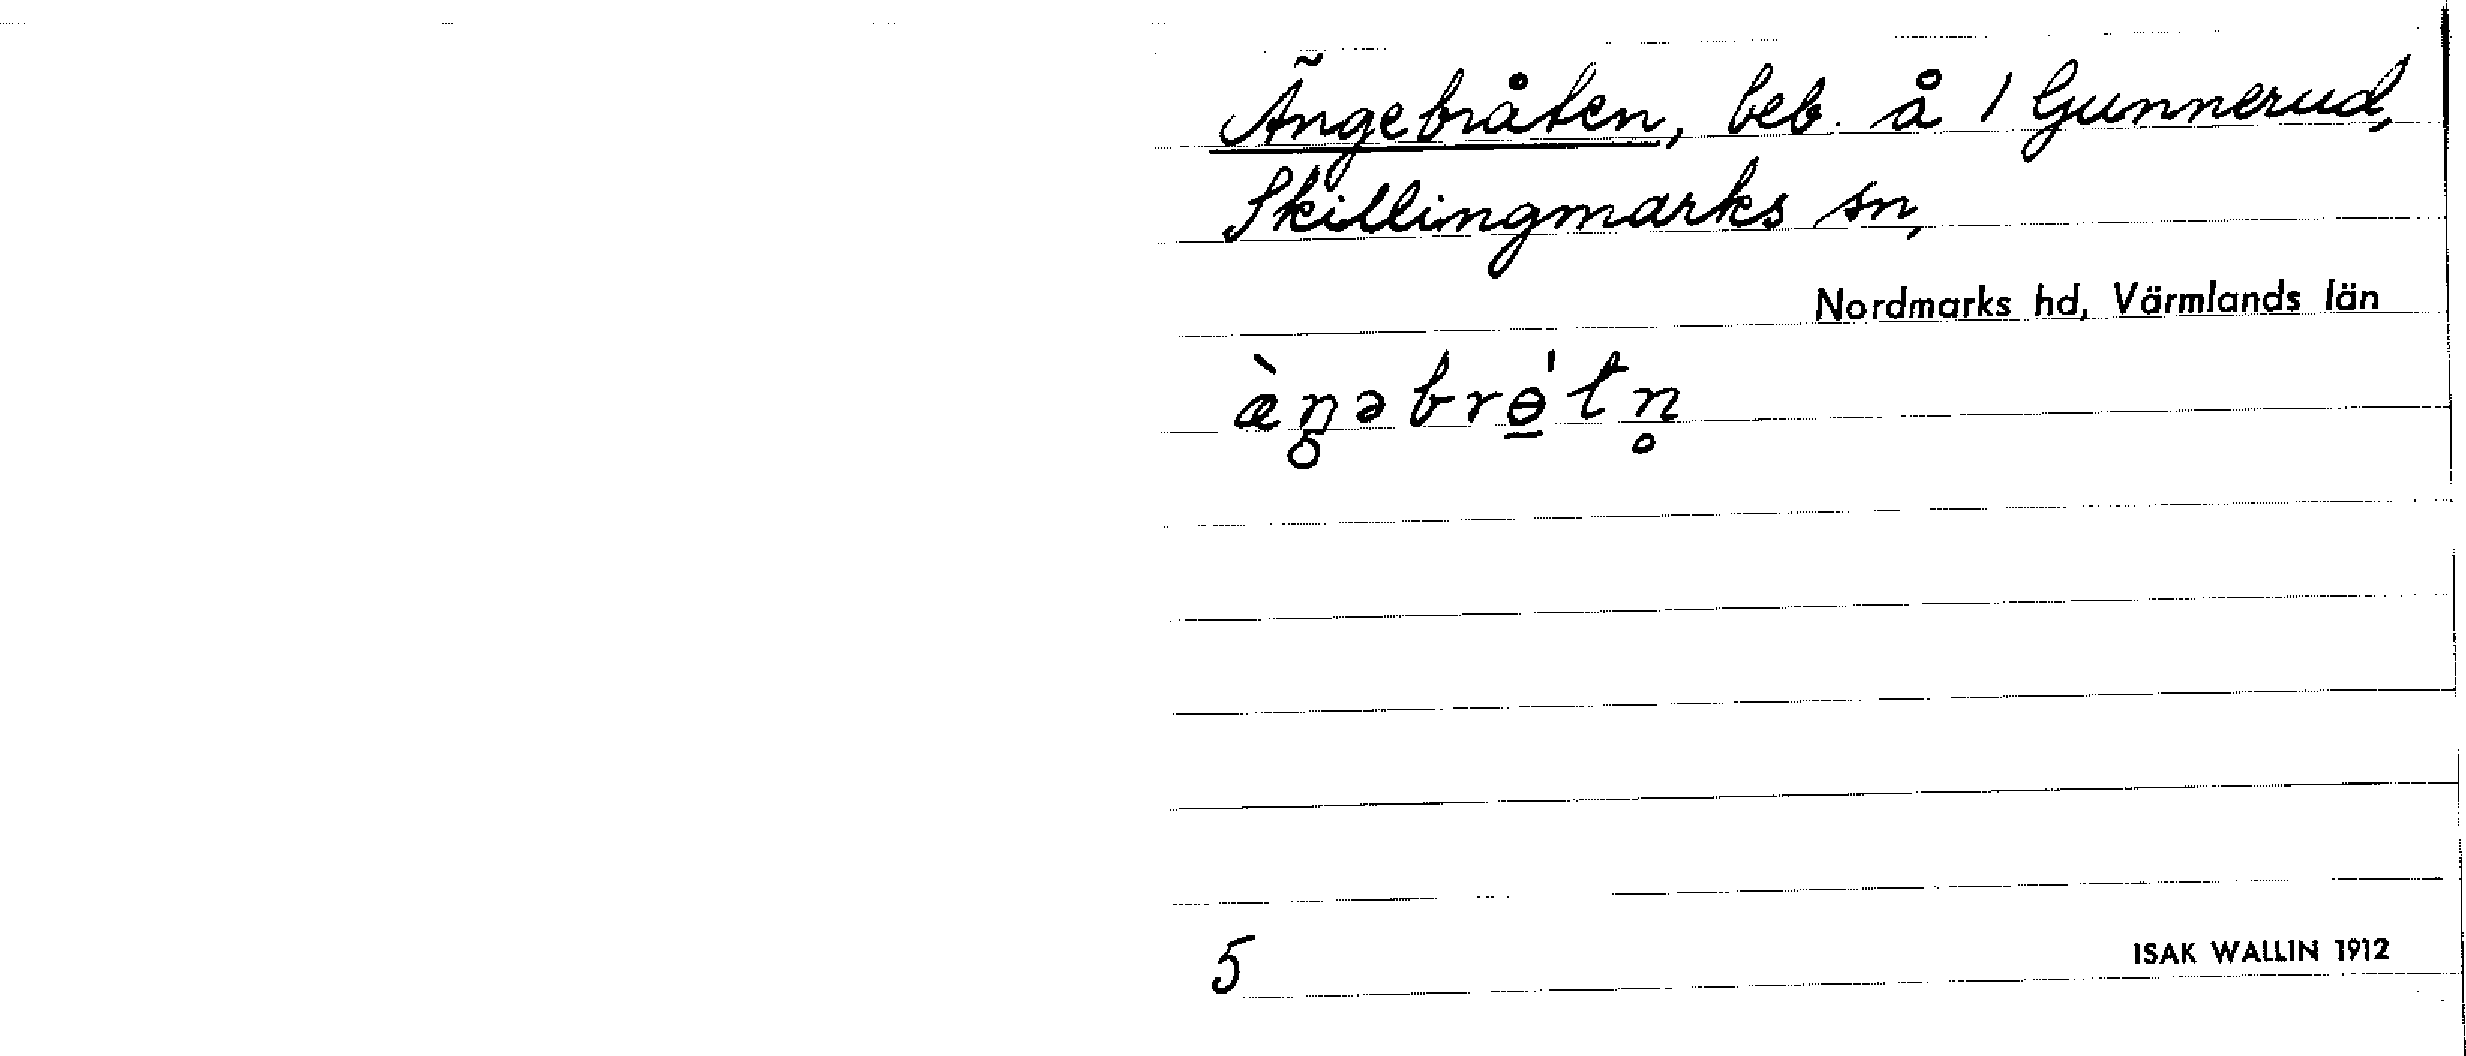 Ängebråten, beb. å 1 Gunnerud,
Skillingmarks sn,
Nordmarks hd, Värmlands län
æ̀ŋəbrɵ̱́tn̥
5
ISAK WALLIN 1912